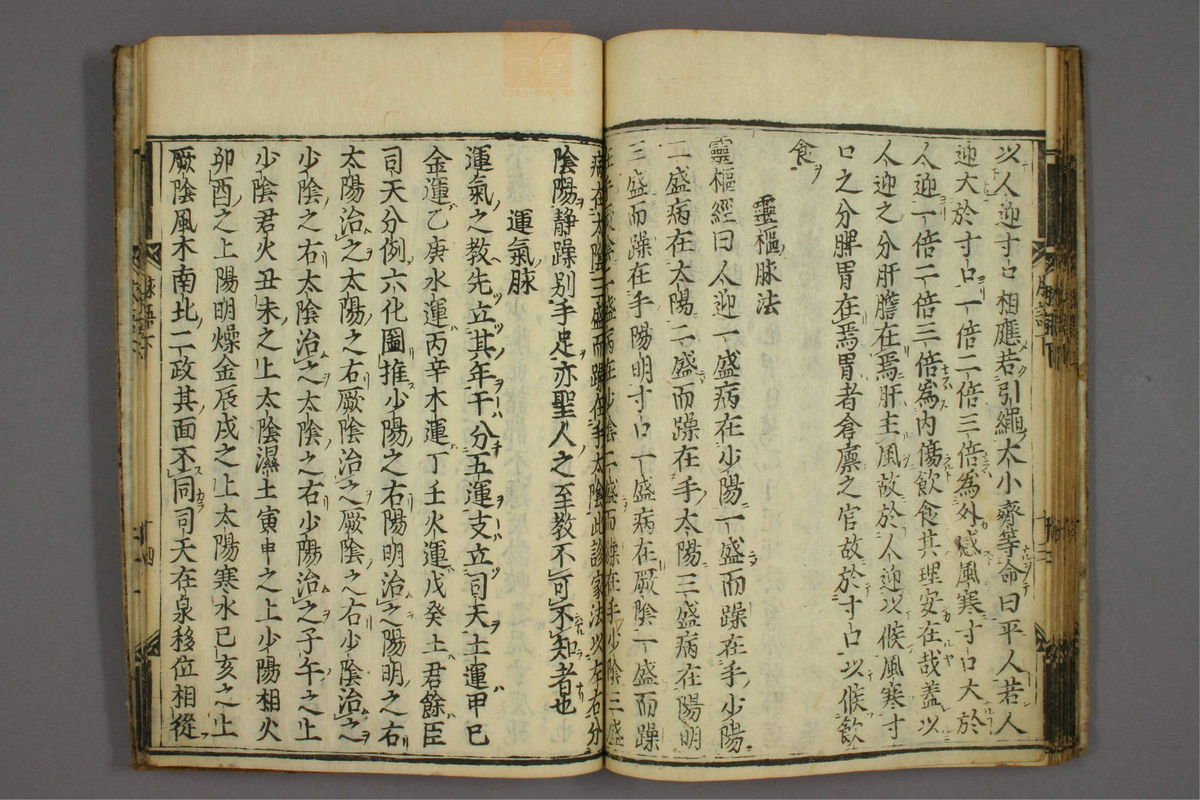 以人迎寸口相應若引繩大小齊等命曰平人若人
迎大於寸口一倍二倍三倍為外感風寒寸口大於
人迎一倍二倍三倍為内傷飲食其理安在哉蓋以
人迎之分肝膽在焉肝主風故於人迎以候風寒寸
口之分脾胃在焉胃者倉廩之官故於寸口以候飲
食
靈樞脉法
靈樞經曰人迎一盛病在少陽一盛而躁在手少陽
二盛病在太陽二盛而躁在手太陽三盛病在陽明
三盛而躁在手陽明寸口一盛病在厥陰一盛而躁
在手厥陰二盛病在少陰二盛而躁在手少陰三盛
病在太陰三盛而躁在手太陰此診家法以左右分
陰陽靜躁别手足亦聖人之至教不可不知者也
運氣脉
運氣之教先立其年干分五運支立司天土運甲己
金運乙庚水運丙辛木運丁壬火運戊癸土君餘臣
司天分例六化圖推少陽之右陽明治之陽明之右
太陽治之太陽之右厥陰治之厥陰之右少陰治之
少陰之右太陰治之太陰之右少陽治之子午之上
少陰君火丑未之上太陰濕土寅申之上少陽相火
卯酉之上陽明燥金辰戌之上太陽寒水巳亥之上
厥陰風木南北二政其面不同司天在泉移位相從